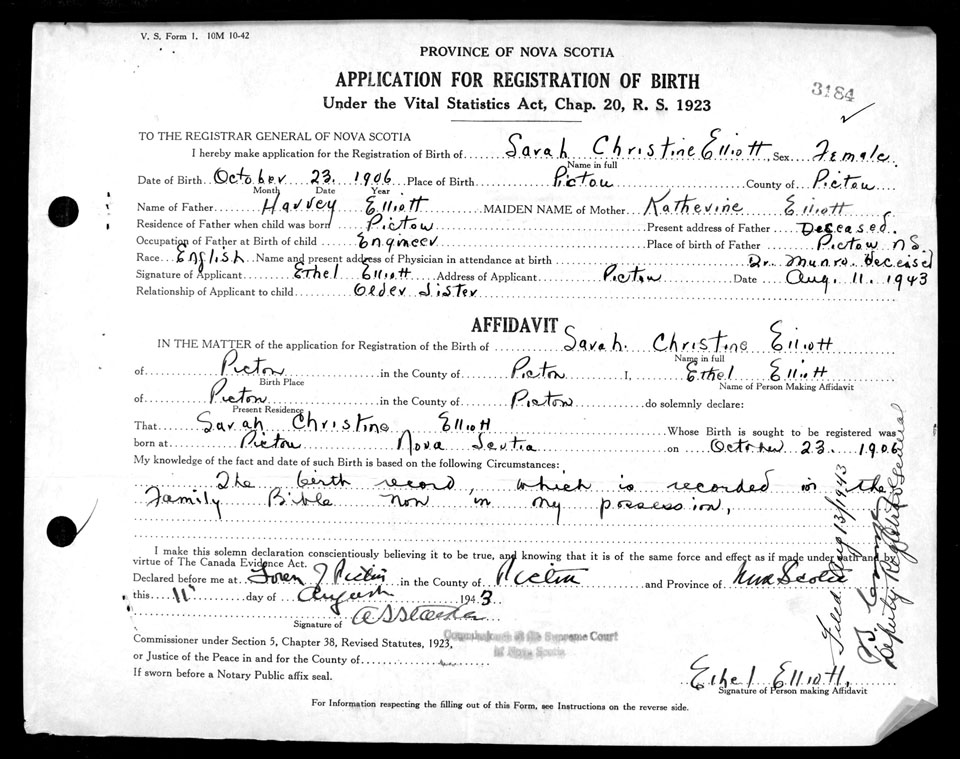 V. S. Form 1. 10M 10-42
PROVINCE OF NOVA SCOTIA
APPLICATION FOR REGISTRATION OF BIRTH
3184
Under the Vital Statistics Act, Chap. 20, R. S. 1923
TO THE REGISTRAR GENERAL OF NOVA SCOTIA
I hereby make application for the Registration of Birth of Sarah Christine Elliott, Sex Female.
Name in full
Date of Birth October 23. 1906 Place of Birth Pictou County of Pictou
Month Date Year
Name of Father Harvey Elliott MAIDEN NAME of Mother Katherine Elliott
Residence of Father when child was born Pictou Present address of Father Deceased.
Occupation of Father at Birth of child Engineer Place of birth of Father Pictou N.S.
Race English Name and present address of Physician in attendance at birth Dr. Munro Deceased
Signature of Applicant Ethel Elliott Address of Applicant Pictou Date Aug. 11. 1943
Relationship of Applicant to child Older Sister
AFFIDAVIT
IN THE MATTER of the application for Registration of the Birth of Sarah. Christine Elliott
Name in full
of Pictou in the County of Pictou I, Ethel Elliott
Birth Place Name of Person Making Affidavit
of Pictou in the County of Pictou do solemnly declare:
Present Residence
That Sarah Christine Elliott Whose Birth is sought to be registered was
born at Pictou Nova Scotia on October 23. 1906
My knowledge of the fact and date of such Birth is based on the following Circumstances:
The birth record, which is recorded in the
Family Bible now in my possession,
I make this solemn declaration conscientiously believing it to be true, and knowing that it is of the same force and effect as if made under oath and by
virtue of The Canada Evidence Act.
Declared before me at Town of Pictou in the County of Pictou and Province of Nova Scotia
this 11 day of August 1943
Signature of
Commissioner under Section 5, Chapter 38, Revised Statutes, 1923,
Commissioner of the Supreme Court
of Nova Scotia
or Justice of the Peace in and for the County of
If sworn before a Notary Public affix seal.
Ethel Elliott.
Signature of Person making Affidavit
For Information respecting the filling out of this Form, see Instructions on the reverse side.
Filed Aug 13/1943
Deputy Registrar General